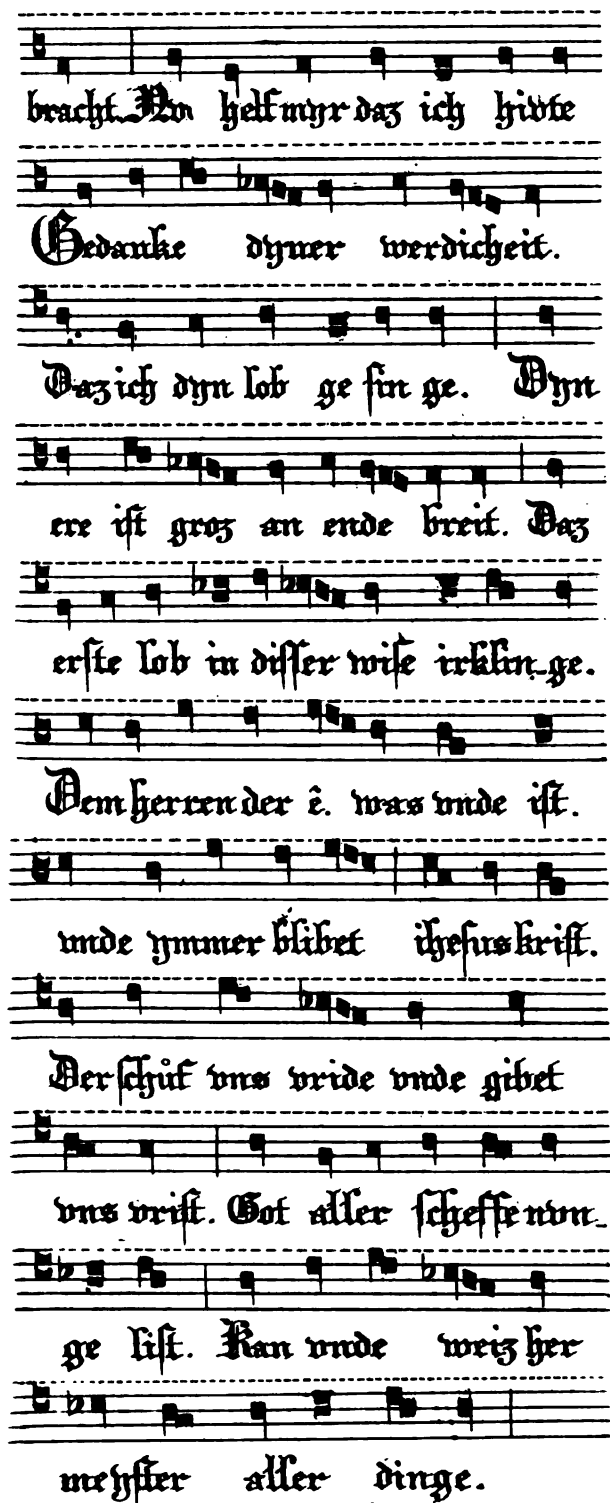 bracht. Nv helf myr daz ich hivte
Gedanke dyner werdicheit.
Daz ich dyn lob ge sin ge. Dyn
ere ist groz an ende breit. Daz
erste lob in disser wise irklin-ge.
Dem herren der ê. was vnde ist.
vnde ymmer blibet ihesus krist.
Der schůf vns vride vnde gibet
vns vrist. Got aller scheffenvn-
ge list. Kan vnde weiz her
meyster aller dinge.